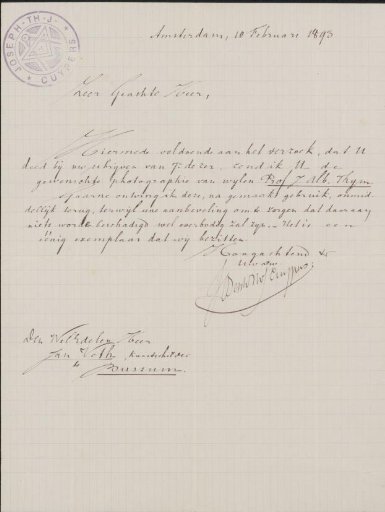 JOSEPH-TH-J-
CUYPERS
Amsterdam, 10 Februari 1893
Zeer Geachte Heer,
Hiermede voldoende aan het verzoek, dat U
deed bij uw schrijven van 7 dezer, zend ik U de
gewenschte photographie van wijlen Prof. J. Alb. Thym.
gaarne ontving ik deze, na gemaakt gebruik, onmid
dellijk terug, terwijl eene aanbeveling om te zorgen dat daaraan
niets wordt beschadigd wel overbodig zal zijn. Het is een
éénig exemplaar dat wij bezitten.
Hoogachtend
Uw
Den WelEdelen Heer
Jan Veth, Kunstschilder
te
Bussum.